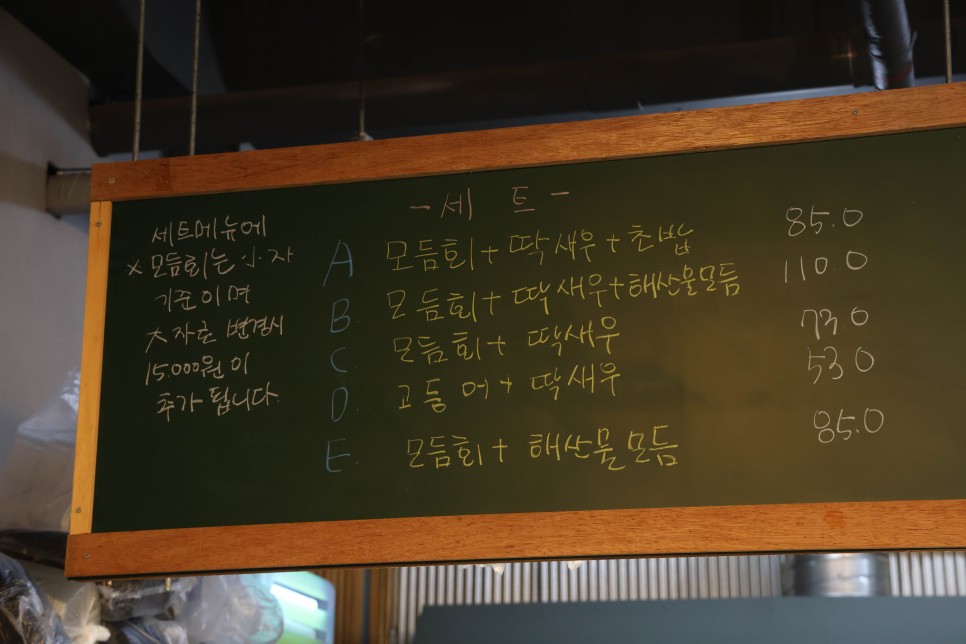 세트메뉴에
× 모듬회는 小자
기준이며
大자로 변경시
15.000원이
추가 됩니다
- 세 트 -
A 모듬회 + 딱새우 + 초밥 85.0
B. 모듬회 + 딱새우 + 해산물모듬 110.0
C 모듬회 + 딱새우 73.0
D. 고등어 + 딱새우 53.0
E. 모듬회 + 해산물모듬 85.0